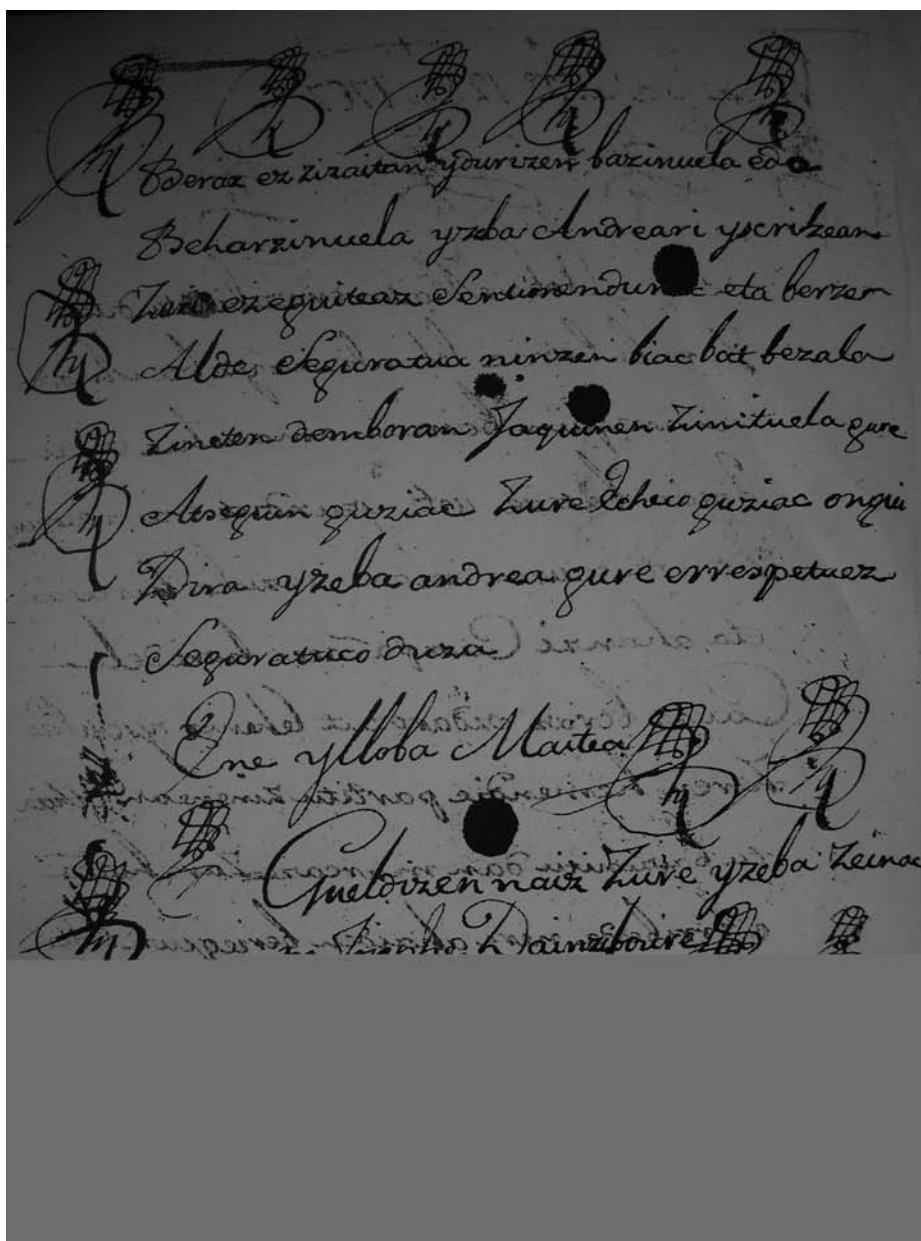 Beraz ez zizaitan ydurizen bazinuela edo
Beharzinuela yzeba Andreari yscritzean
Zure ez eguiteaz Sentimendu eta berzen
Alde, Seguratua ninzen biac bat bezala
Zineten demboran Jaquinen Zinituela gure
Atseguin guziac Zure Echeco guziac ongui
Dira yzeba andrea gure errespetuez
Seguratuco duzu
Ene ylloba Maitea
Gueldizen naiz Zure yzeba Zeinac
Dainzboure